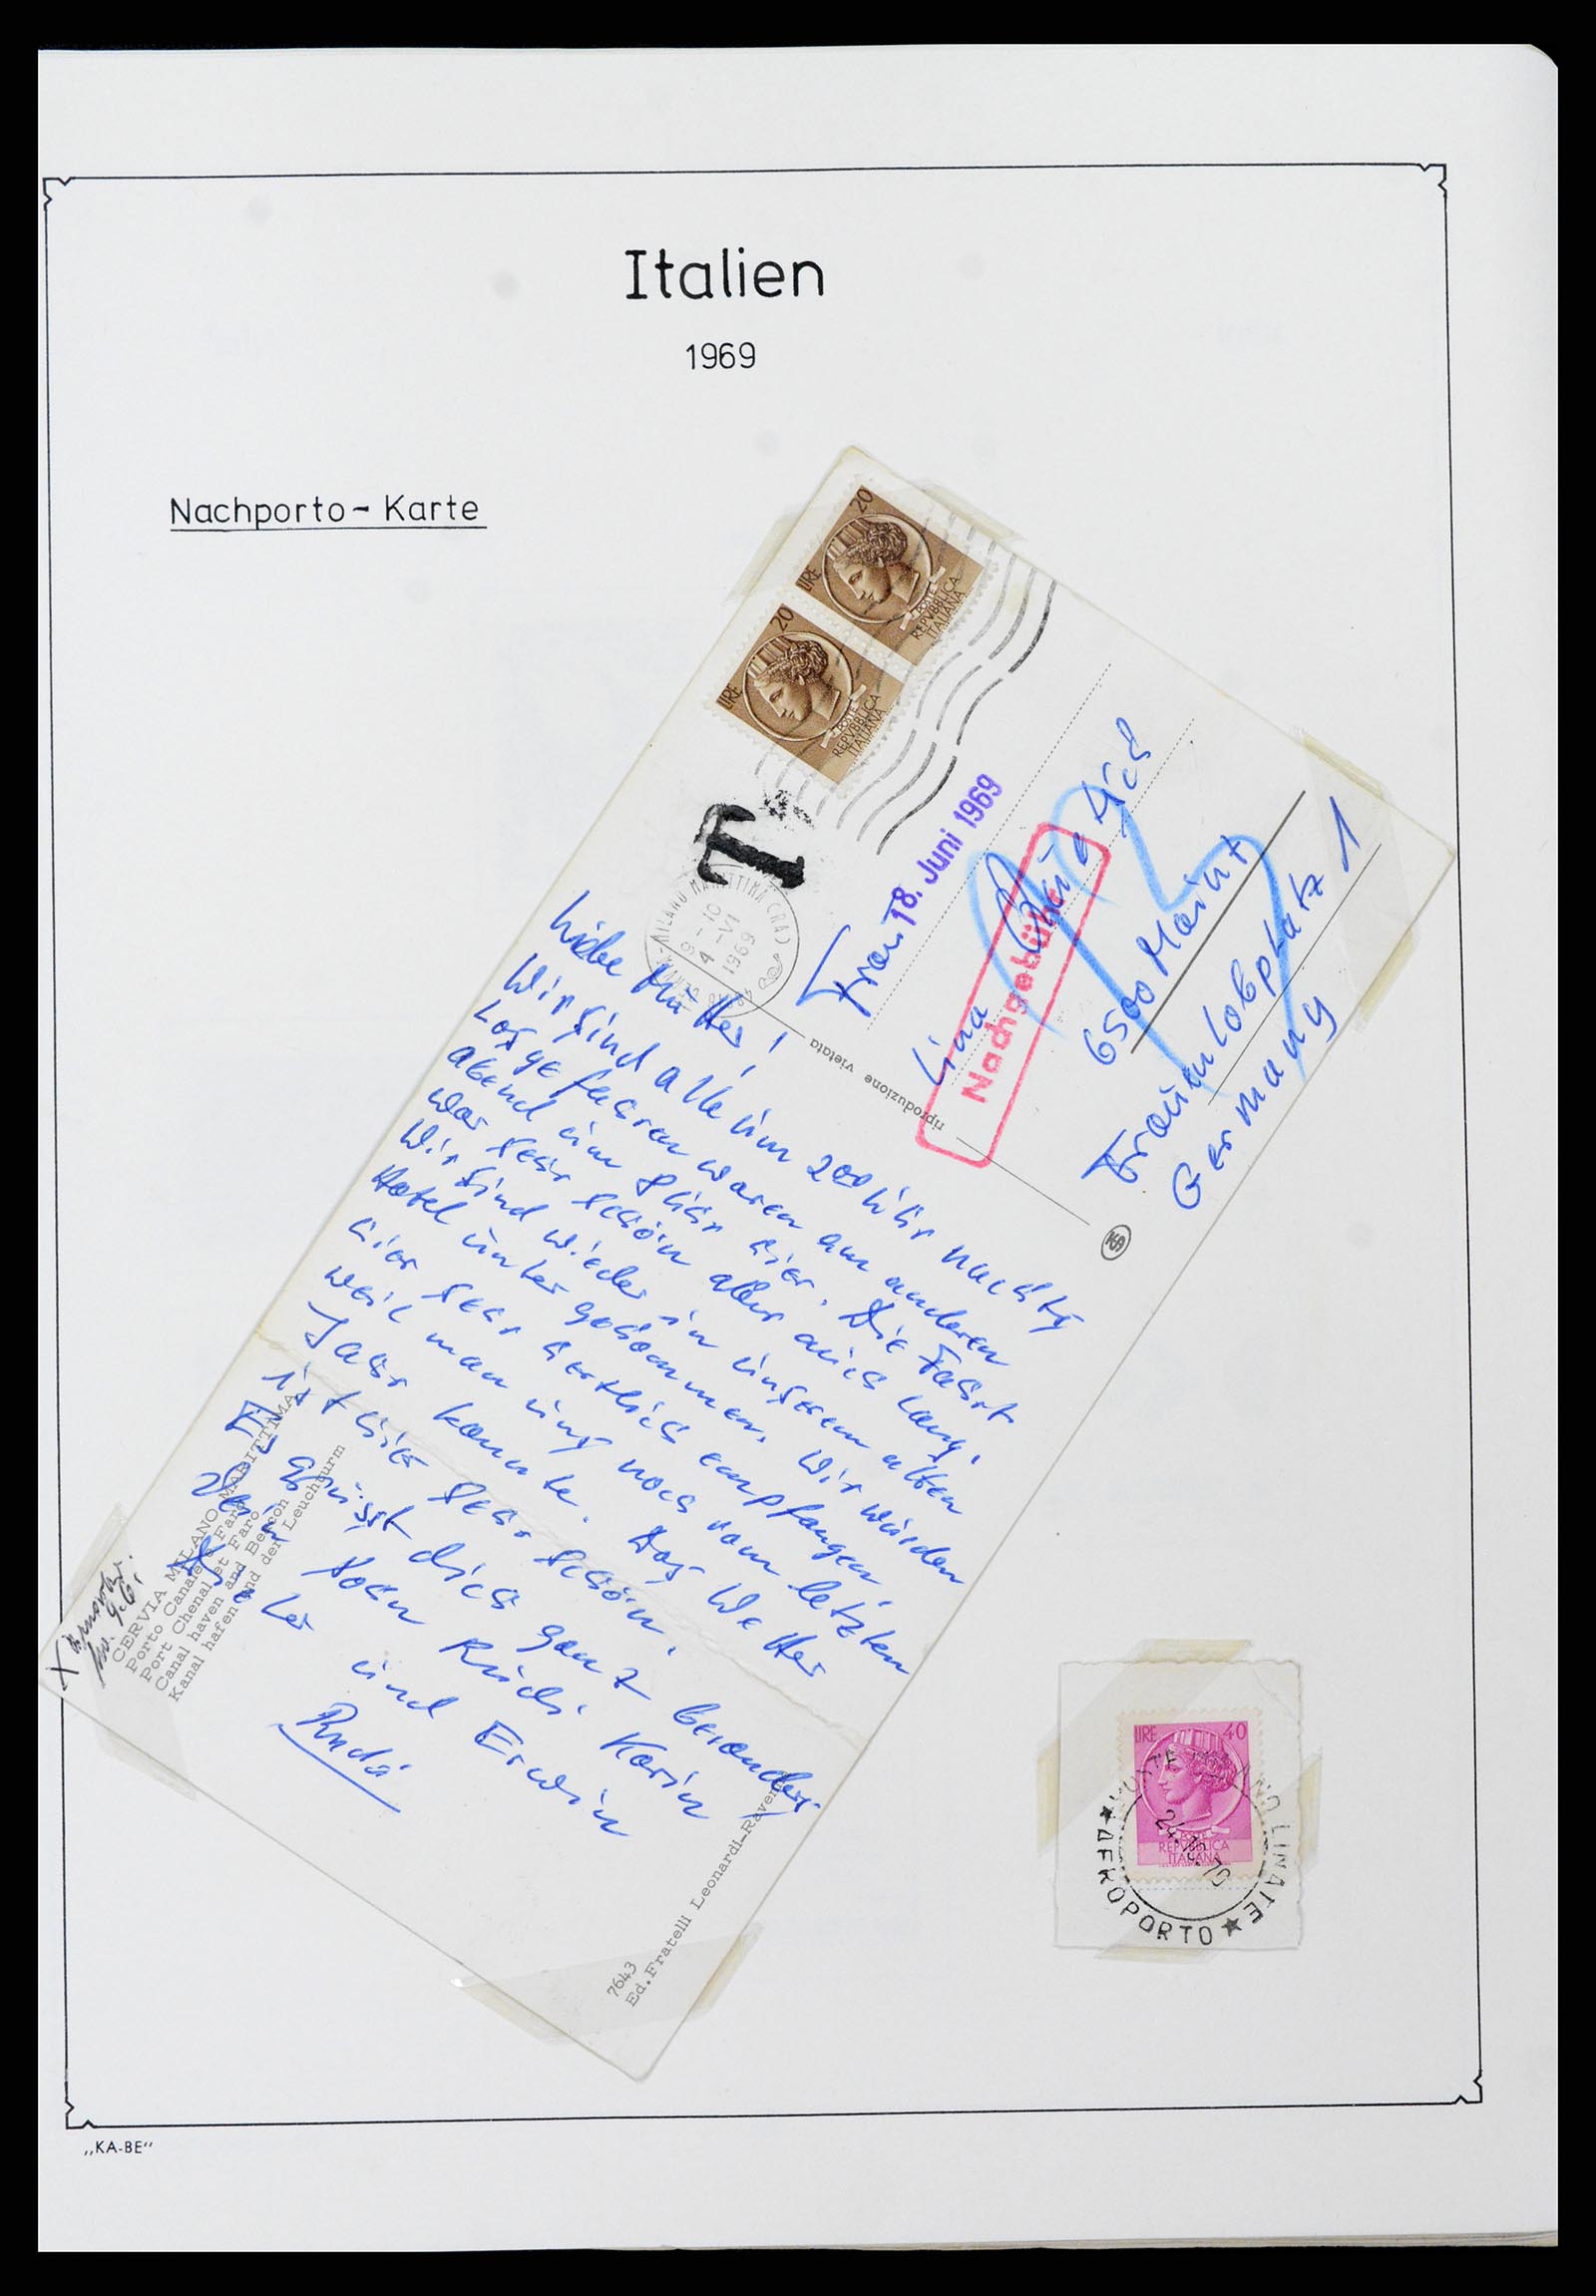 Italien
1969
Nachporto-Karte
20
LIRE
POSTE
REPVBBLICA
ITALIANA
20
LIRE
POSTE
REPVBBLICA
ITALIANA
T
MILANO MARITTIMA (RA)
9-10
4-VI
1969
18. Juni 1969
Nachgebühr
Frau
Lina
6500 Mainz
Frauenlobplatz 1
Germany
riproduzione vietata
KA
Liebe Mutter!
Wir sind alle um 200 Uhr nachts
Losgefahren waren am anderen
abend um 8 Uhr hier. Die Fahrt
war sehr schön aber auch lang.
Wir sind wieder in unserem alten
Hotel untergekommen. Wir wurden
hier sehr herzlich empfangen,
weil man uns noch vom letzten
Jahr kannte. Das Wetter
ist hier sehr schön.
Es grüsst dich ganz besonders
Dein Sohn Rudi Karin
und Erwin
Rudi
9.6.
CERVIA MILANO MARITTIMA
Porto Canale e Faro
Port Chenal et Faro
Canal haven and Beacon
Kanal hafen und der Leuchturm
7643
Ed. Fratelli Leonardi-Raven
LIRE 40
POSTE
REPVBBLICA
ITALIANA
NO LINATE
★ AEROPORTO ★
„KA-BE“